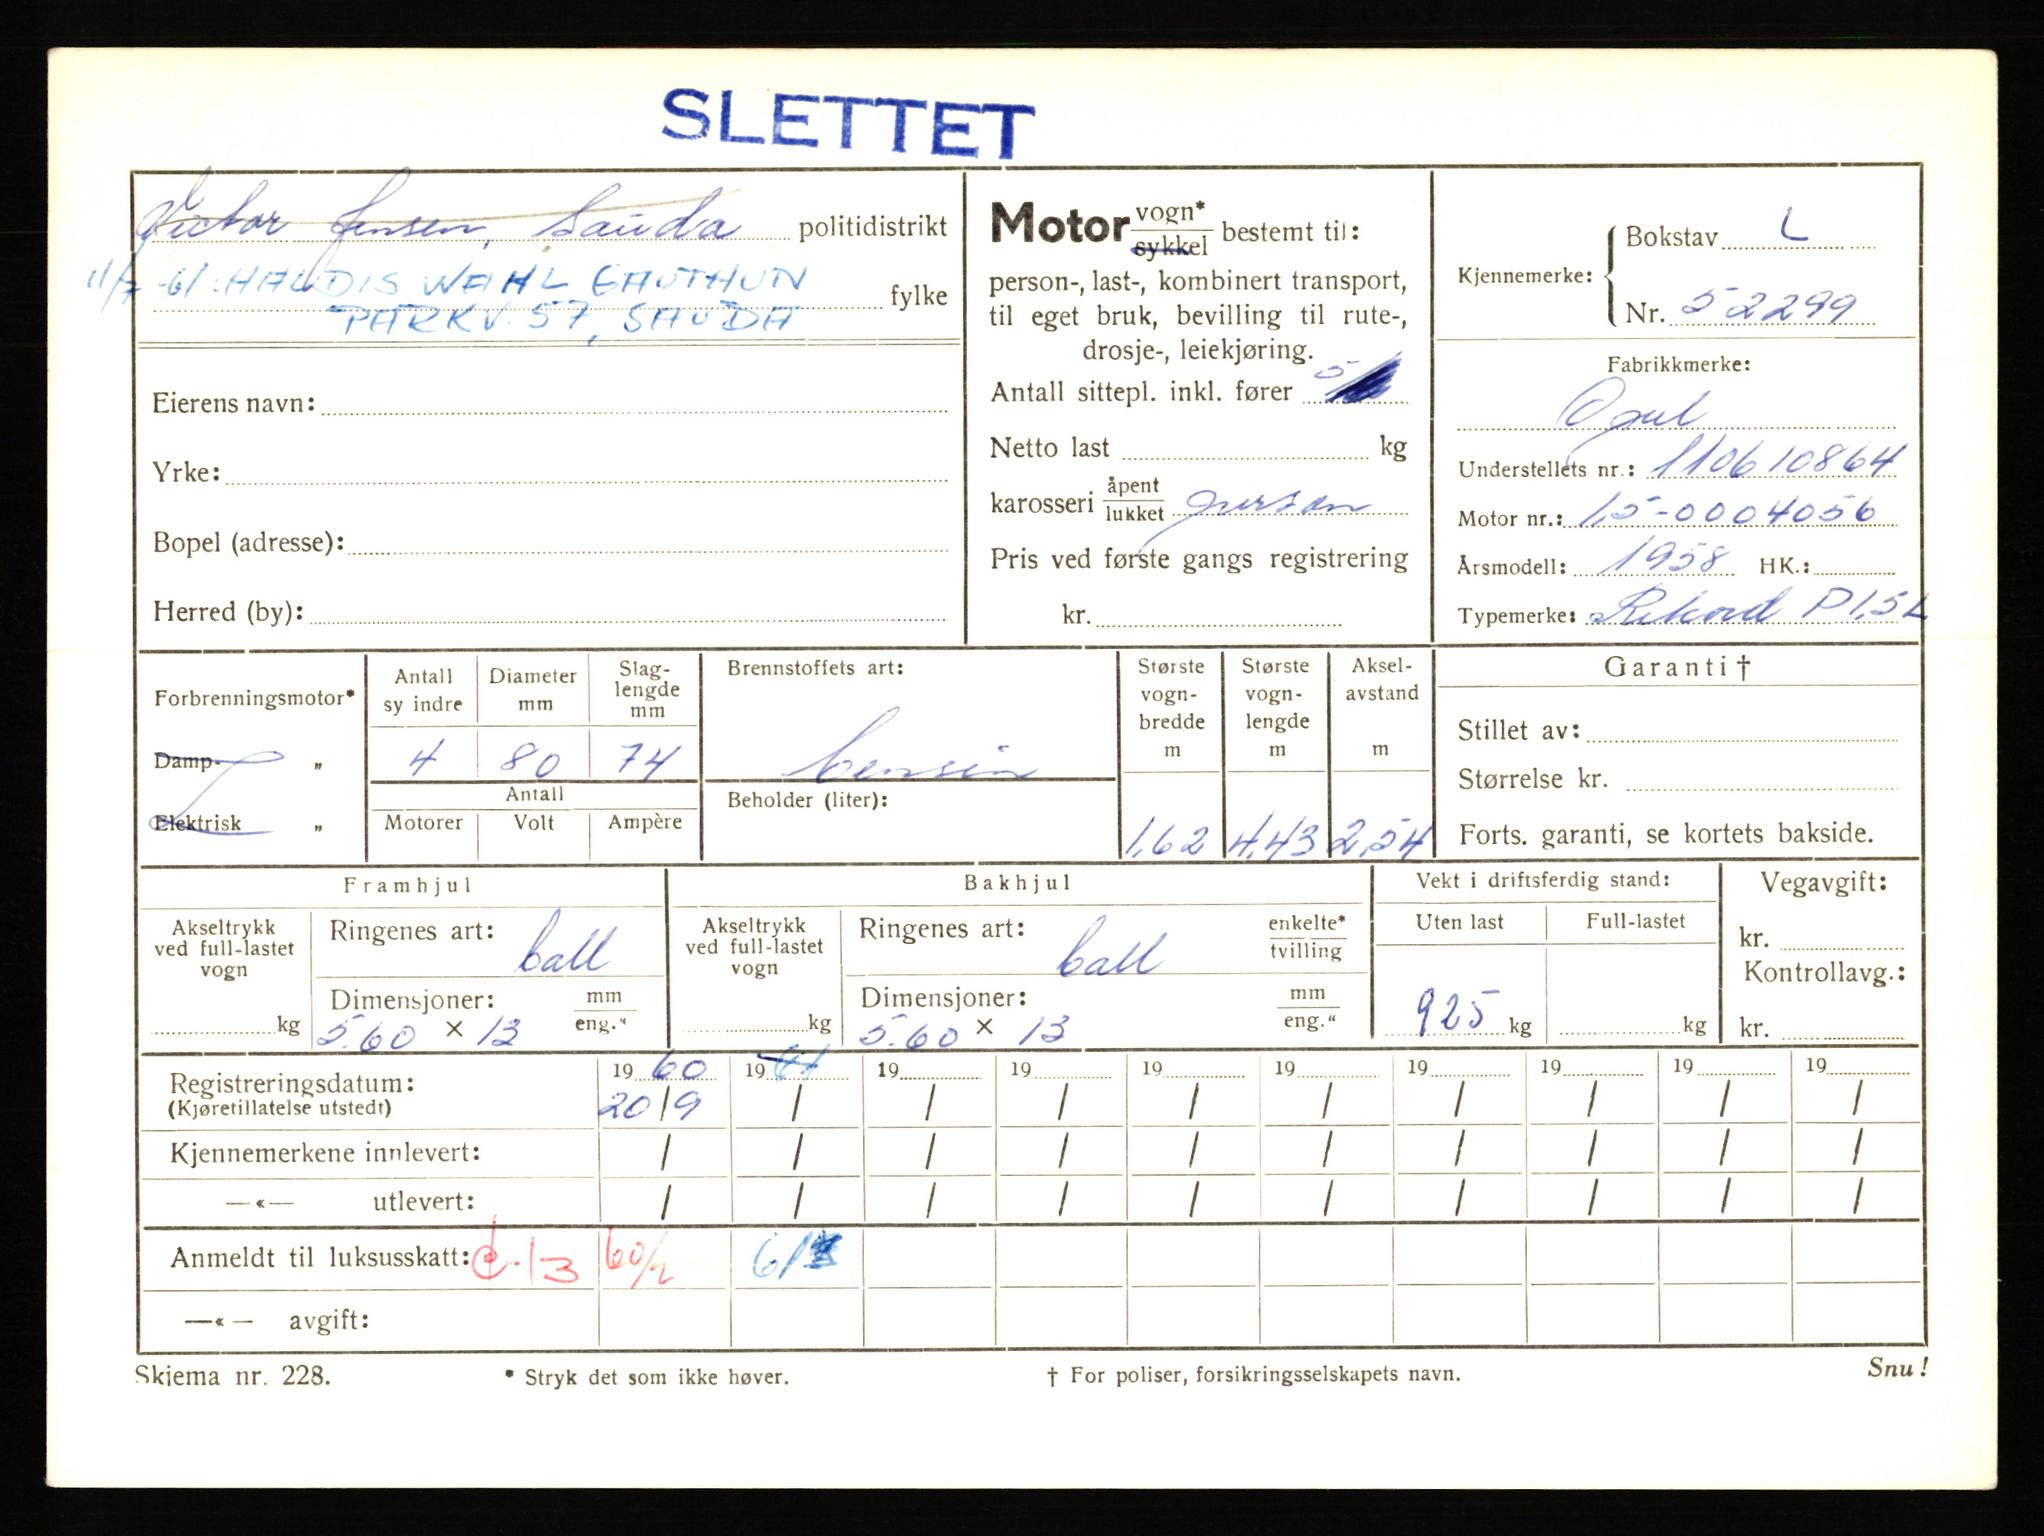 SLETTET
Victor Jensen, Sauda politidistrikt
11/7-61: HALDIS WAHL GAUTHUN fylke
PARKV. 57, SAUDA
Eierens navn:
Yrke:
Bopel (adresse):
Herred (by):
Motor vogn* sykkel bestemt til:
person-, last-, kombinert transport,
til eget bruk, bevilling til rute-,
drosje-, leiekjøring.
Antall sittepl. inkl. fører 5
Netto last kg
karosseri åpent lukket person
Pris ved første gangs registrering
kr.
Kjennemerke: Bokstav L
Nr. 52299
Fabrikkmerke:
Opel
Understellets nr.: 110610864
Motor nr.: 1,5-0004056
Årsmodell: 1958 HK.:
Typemerke: Rekord P 1,5 L
Forbrenningsmotor*
Damp- „
Elektrisk „
Antall sy indre
4
Diameter mm
80
Slag-lengde mm
74
Antall
Motorer Volt Ampère
Brennstoffets art:
bensin
Beholder (liter):
Største vogn-bredde m
1,62
Største vogn-lengde m
4,43
Aksel-avstand m
2,54
Garanti †
Stillet av:
Størrelse kr.
Forts. garanti, se kortets bakside.
Framhjul
Akseltrykk ved full-lastet vogn
kg
Ringenes art: ball
Dimensjoner: mm eng."
5.60 × 13
Bakhjul
Akseltrykk ved full-lastet vogn
kg
Ringenes art: ball enkelte* tvilling
Dimensjoner: mm eng."
5.60 × 13
Vekt i driftsferdig stand:
Uten last Full-lastet
925 kg kg
Vegavgift:
kr.
Kontrollavg.:
kr.
Registreringsdatum: 19 60 19 61 19 19 19 19 19 19 19 19
(Kjøretillatelse utstedt) 20/9 / / / / / / / / /
Kjennemerkene innlevert: / / / / / / / / / /
—«— utlevert: / / / / / / / / / /
Anmeldt til luksusskatt: 60/2 61/
—«— avgift:
Skjema nr. 228. * Stryk det som ikke høver. † For poliser, forsikringsselskapets navn. Snu!